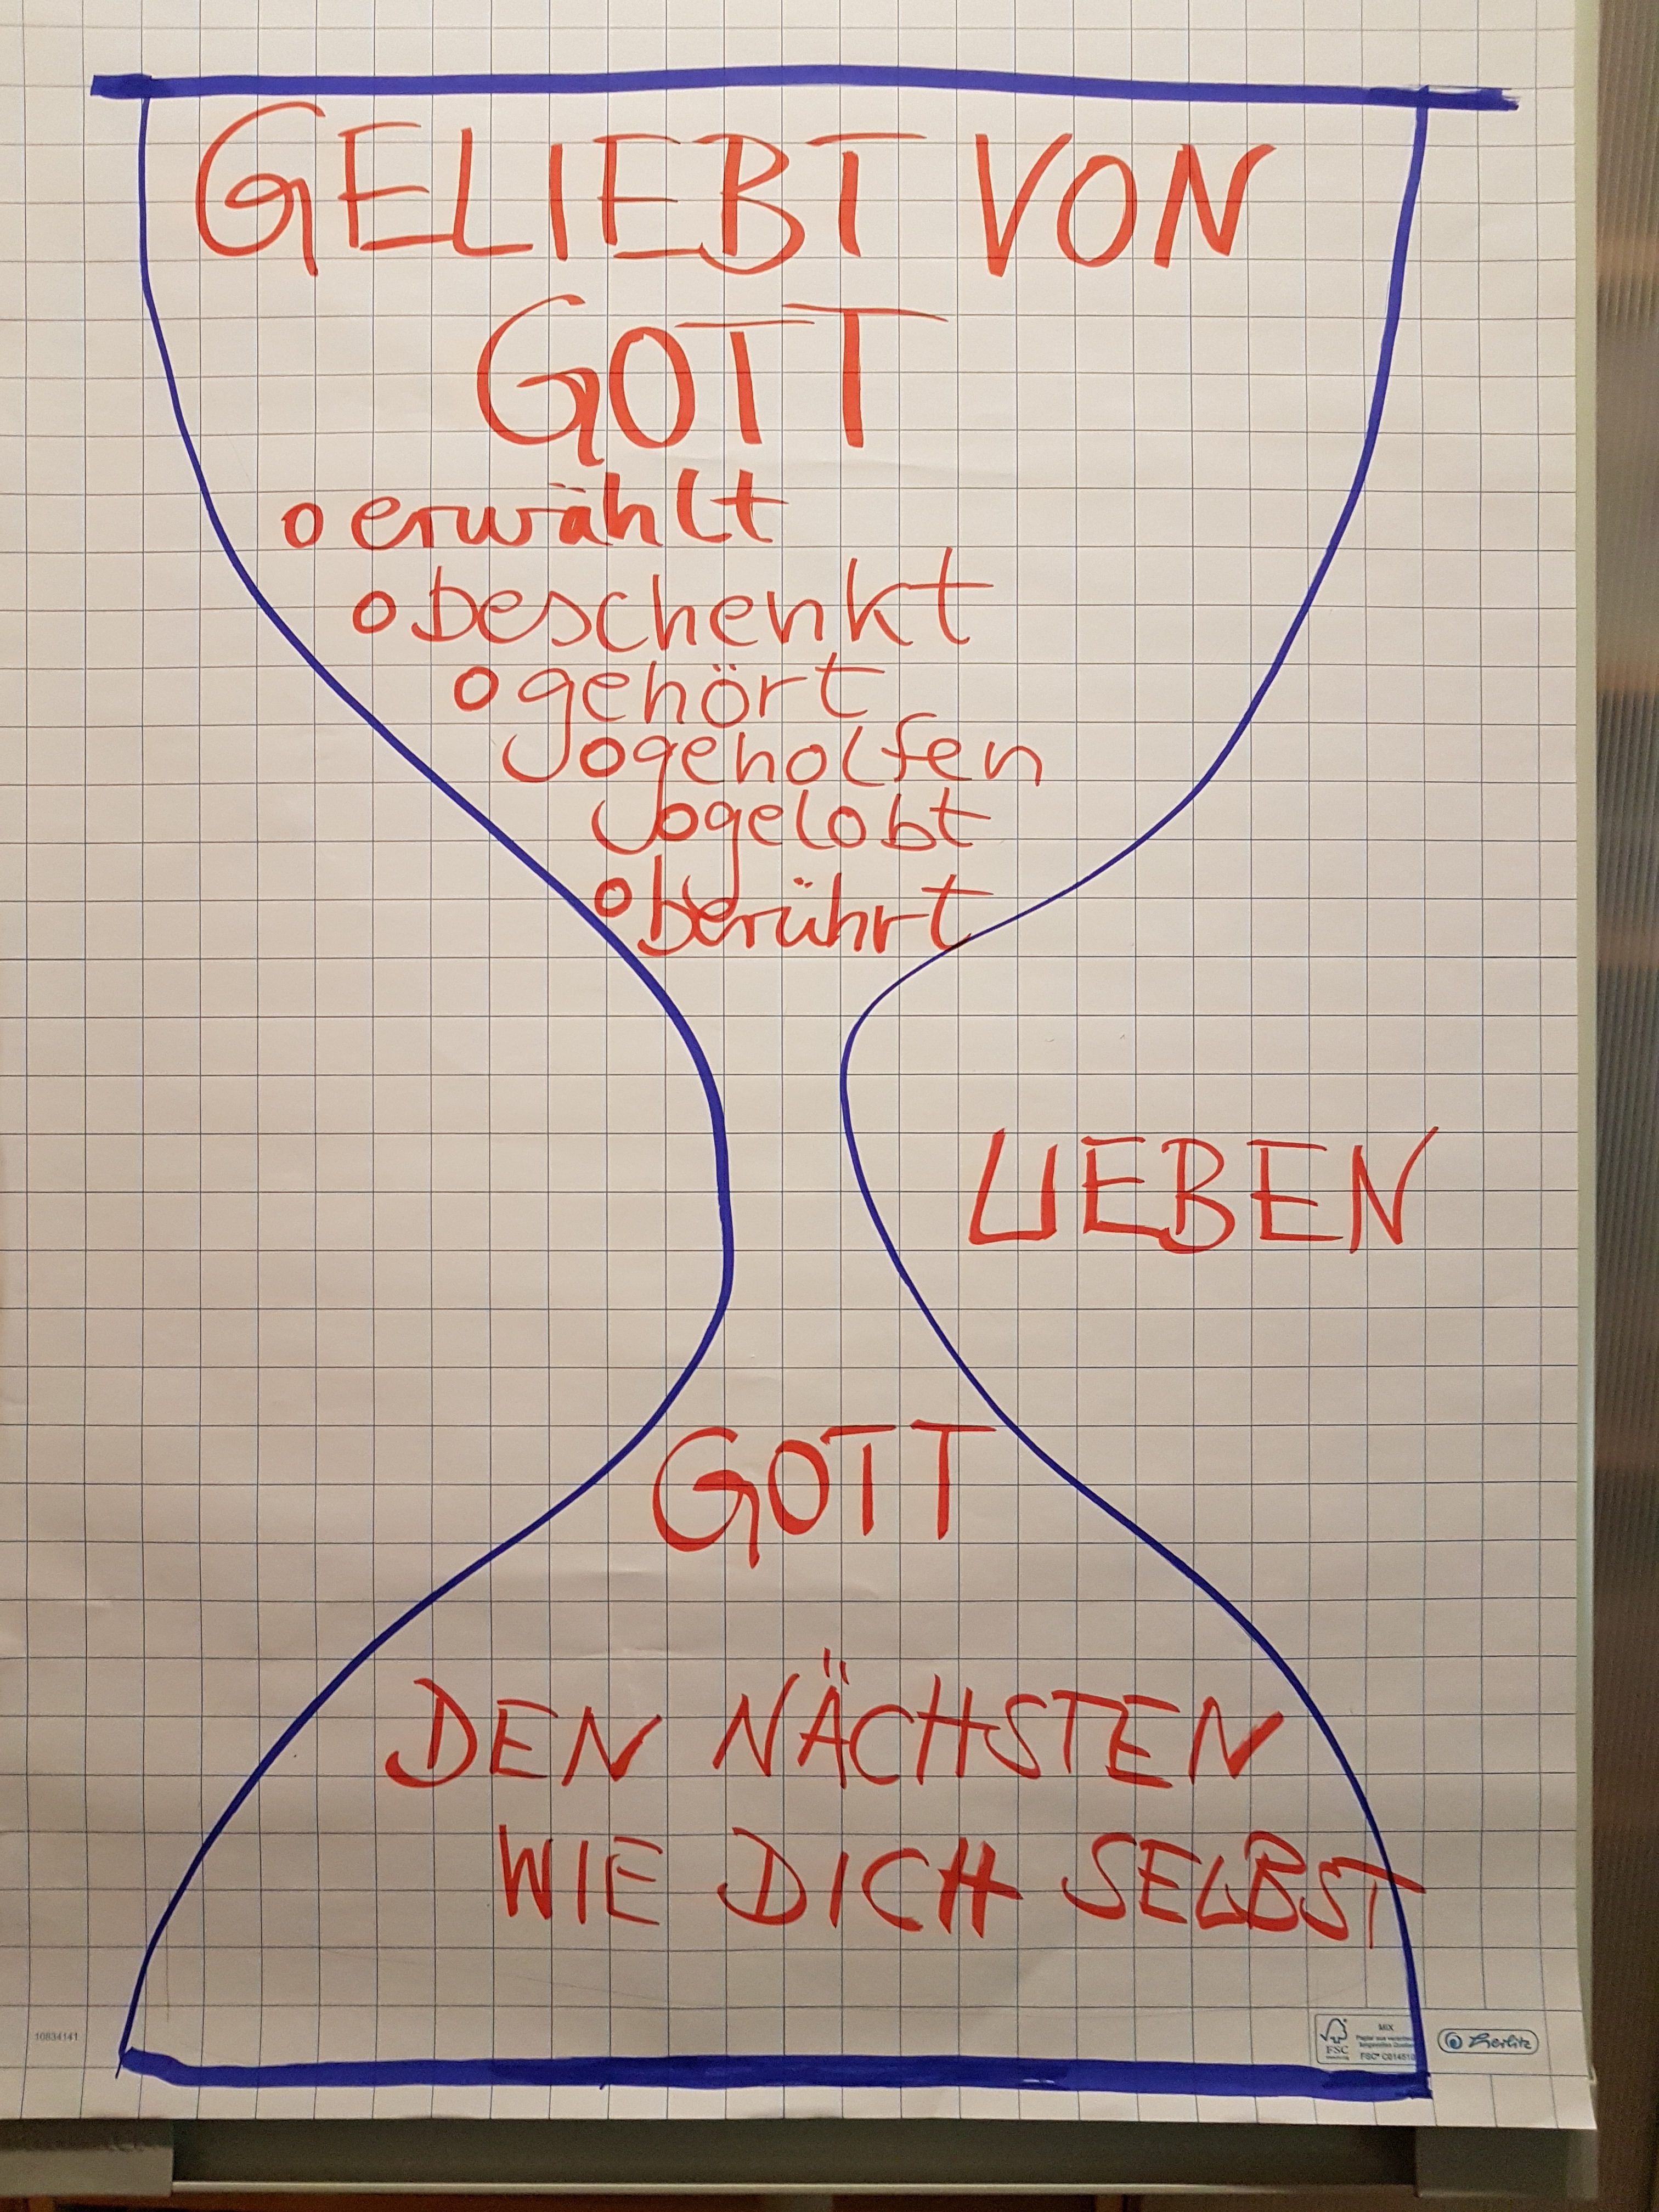 GELIEBT VON
GOTT
o erwählt
o beschenkt
o gehört
o geholfen
o gelobt
o berührt
LIEBEN
GOTT
DEN NÄCHSTEN
WIE DICH SELBST
10834141
FSC
MIX
FSC® C014510
Herlitz